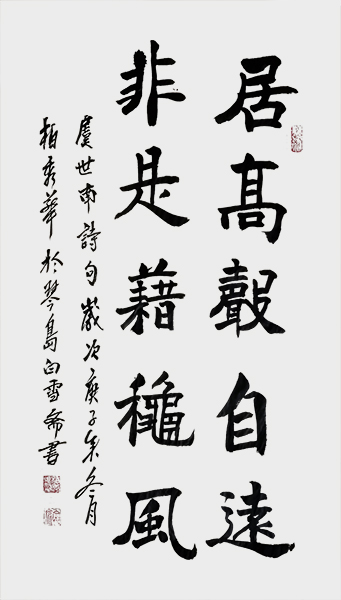 居高聲自遠
非是藉龝風
虞世南詩句歲次庚子年冬月
柏秀華於琴島白雪齋書